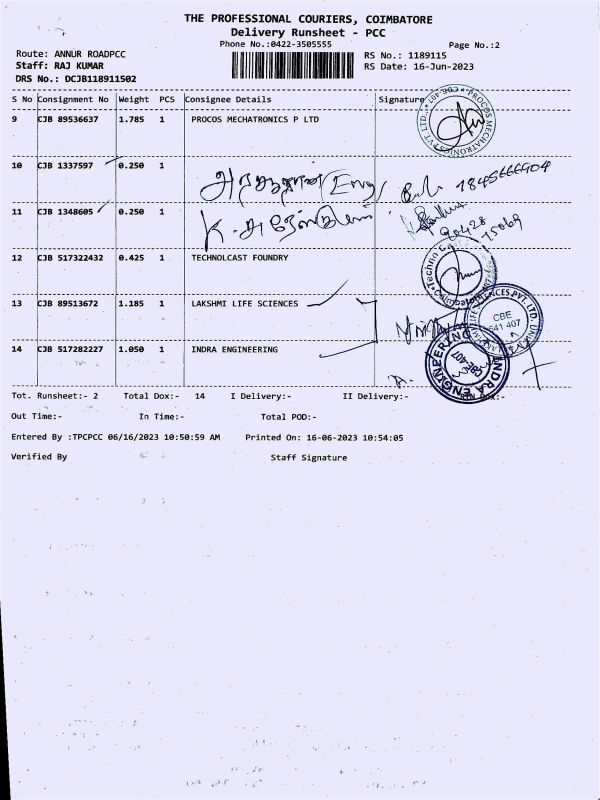 THE PROFESSIONAL COURIERS, COIMBATORE
Delivery Runsheet - PCC
Phone No.:0422-3505555
Page No.:2
Route: ANNUR ROADPCC
Staff: RAJ KUMAR
DRS No.: DCJB118911502
RS No.: 1189115
RS Date: 16-Jun-2023
S No Consignment No Weight PCS Consignee Details Signature
9 CJB 89536637 1.785 1 PROCOS MECHATRONICS P LTD
PROCOS MECHATRONICS PVT LTD. CBE-407
10 CJB 1337597 0.250 1
11 CJB 1348605 0.250 1
12 CJB 517322432 0.425 1 TECHNOLCAST FOUNDRY
13 CJB 89513672 1.185 1 LAKSHMI LIFE SCIENCES
CBE
641 407
14 CJB 517282227 1.050 1 INDRA ENGINEERING
INDRA ENGINEERING
CBE-407
Tot. Runsheet:- 2 Total Dox:- 14 I Delivery:- II Delivery:-
Out Time:- In Time:- Total POD:-
Entered By :TPCPCC 06/16/2023 10:50:59 AM Printed On: 16-06-2023 10:54:05
Verified By Staff Signature